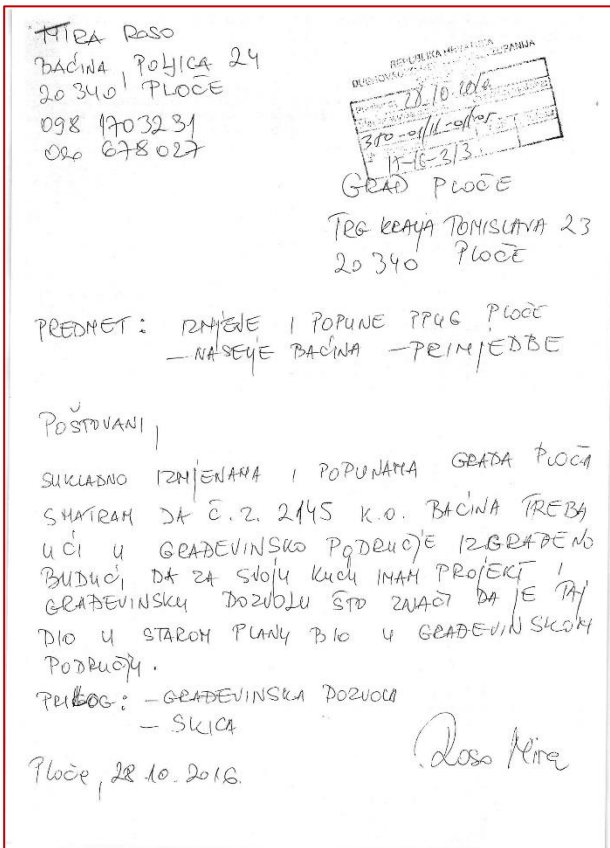 MIRA ROSO
BAĆINA, POLJICA 24
20 340 PLOČE
098 1703231
020 678027
REPUBLIKA HRVATSKA
28.10.2016
GRAD PLOČE
TRG KRALJA TOMISLAVA 23
20 340 PLOČE
PREDMET: IZMJENE I POPUNE PPUG PLOČE
– NASELJE BAĆINA – PRIMJEDBE
POŠTOVANI,
SUKLADNO IZMJENAMA I POPUNAMA GRADA PLOČA
SMATRAM DA Č.Z. 2145 K.O. BAĆINA TREBA
UĆI U GRAĐEVINSKO PODRUČJE IZGRAĐENO
BUDUĆI DA ZA SVOJU KUĆU IMAM PROJEKT I
GRAĐEVINSKU DOZVOLU ŠTO ZNAČI DA JE TAJ
DIO U STAROM PLANU BIO U GRAĐEVINSKOM
PODRUČJU.
PRILOG: – GRAĐEVINSKA DOZVOLA
– SKICA
Ploče, 28.10.2016.
Roso Mira